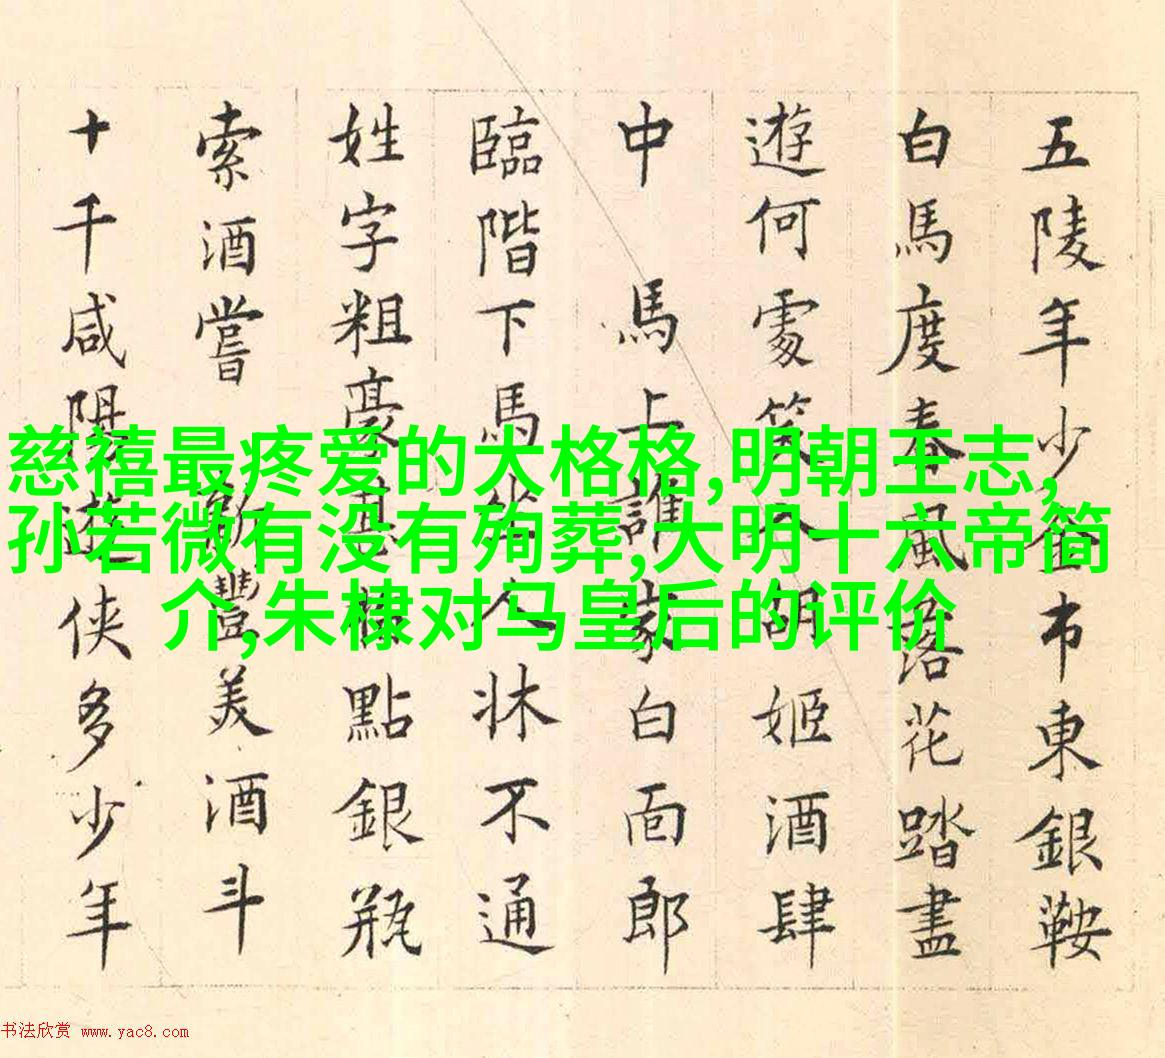 五陵年少金市東銀鞍
白馬度春風落花踏盡
遊何處笑入胡姬酒肆
中 馬上誰家白面郎
臨階下馬坐人牀不通
姓字粗豪甚點銀瓶
索酒嘗 新豐美酒斗
十千咸陽遊俠多少年
慈禧最疼爱的大格格,明朝王志,
孙若微有没有殉葬,大明十六帝简
介,朱棣对马皇后的评价
书法欣赏 www.yac8.com